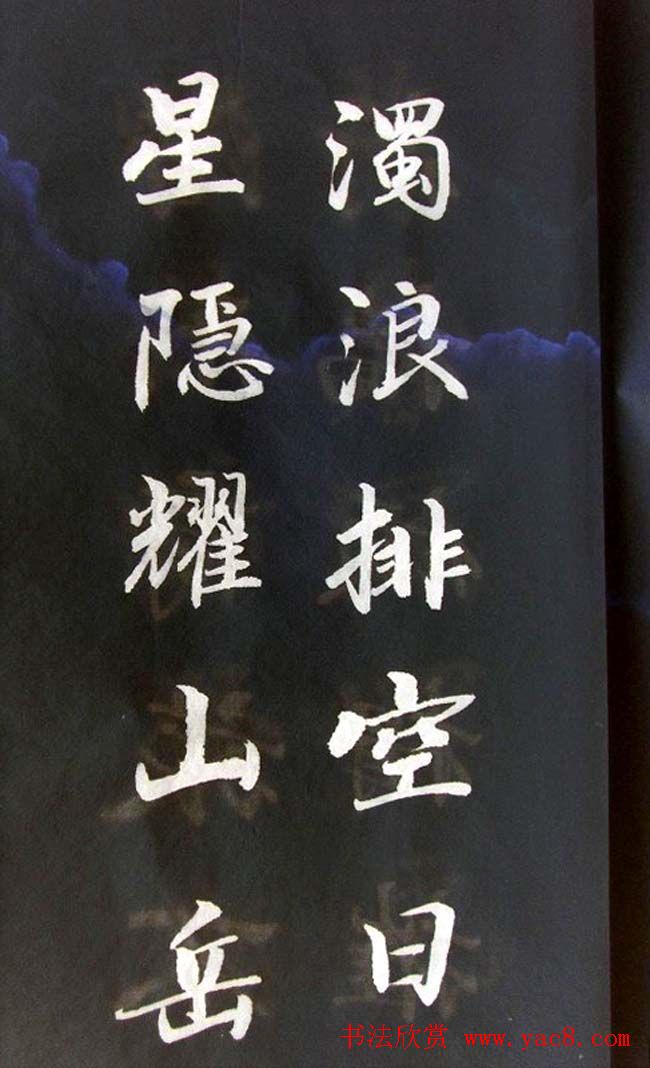 濁浪排空日
星隱耀山岳
书法欣赏 www.yac8.com